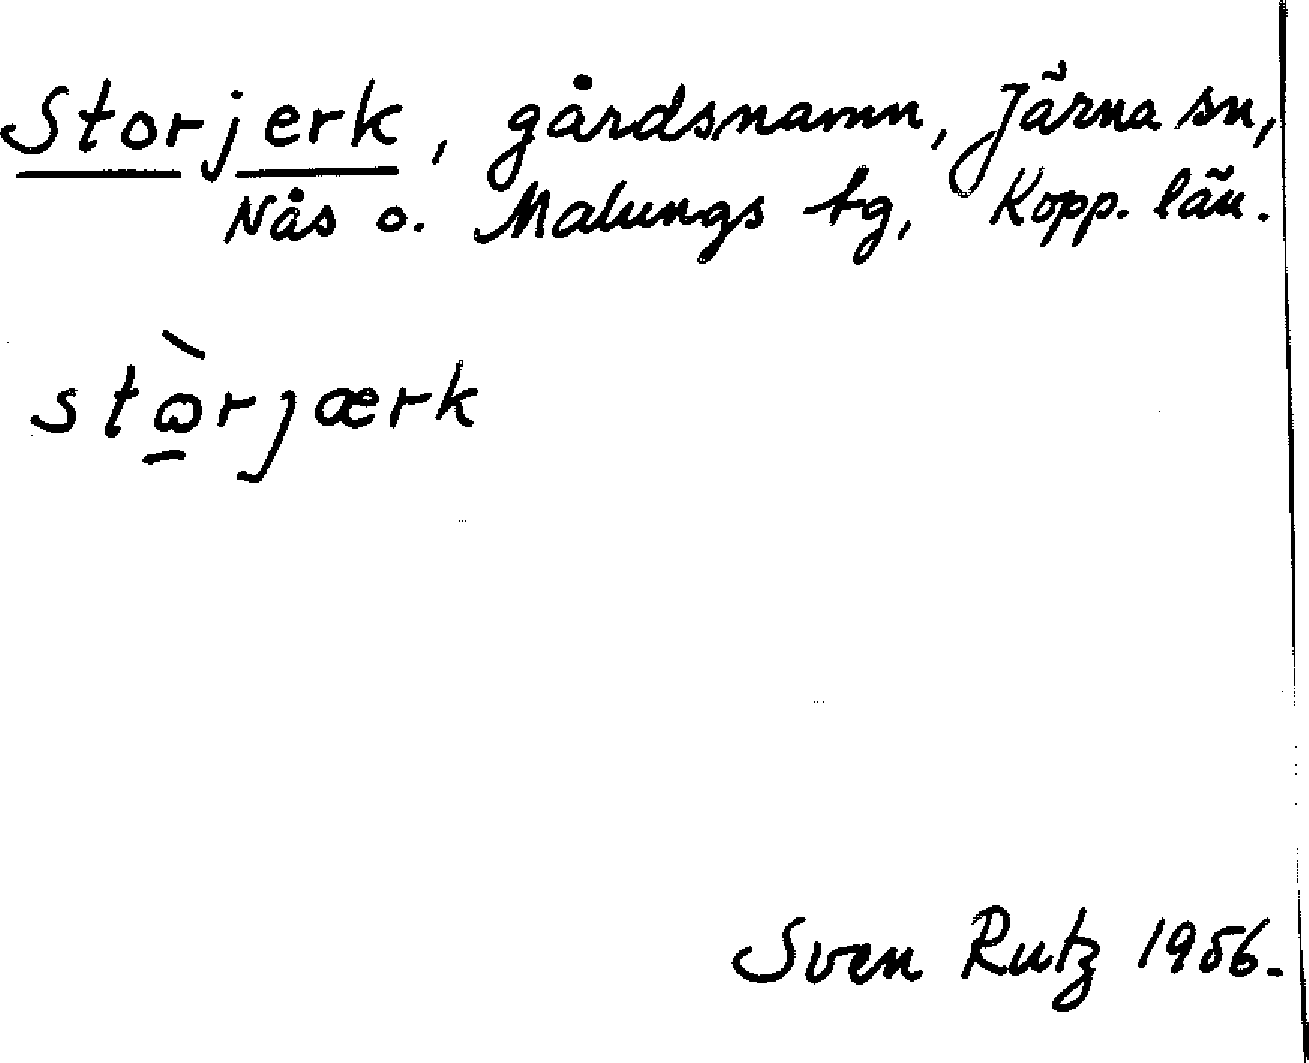 Storjerk, gårdsnamn, Järna sn,
Nås o. Malungs tg, Kopp. län.
stὼ̠rjærk
Sven Rutz 1956.